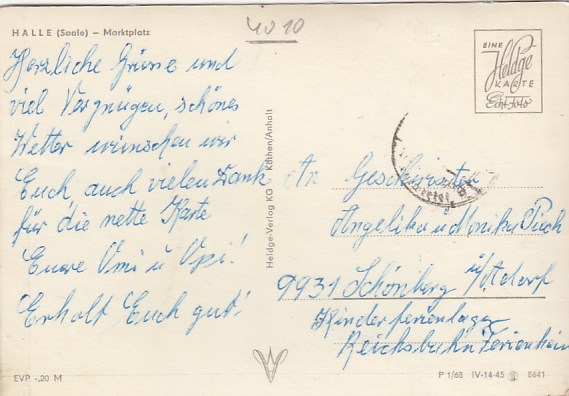 4010
HALLE (Saale) – Marktplatz
Herzliche Grüsse und
viel Vergnügen, schönes
Wetter wünschen wir
Euch, auch vielen Dank
für die nette Karte
Eure Omi u Opi!
Erholt Euch gut!
EVP -,20 M
Heldge-Verlag KG Köthen/Anhalt
EINE
Heldge
KARTE
Echt-Foto
An Geschwister
Angelika u Monika
9931 Schönberg
Kinderferienlager
Reichsbahn Ferienheim
P 1/68 IV-14-45 5641